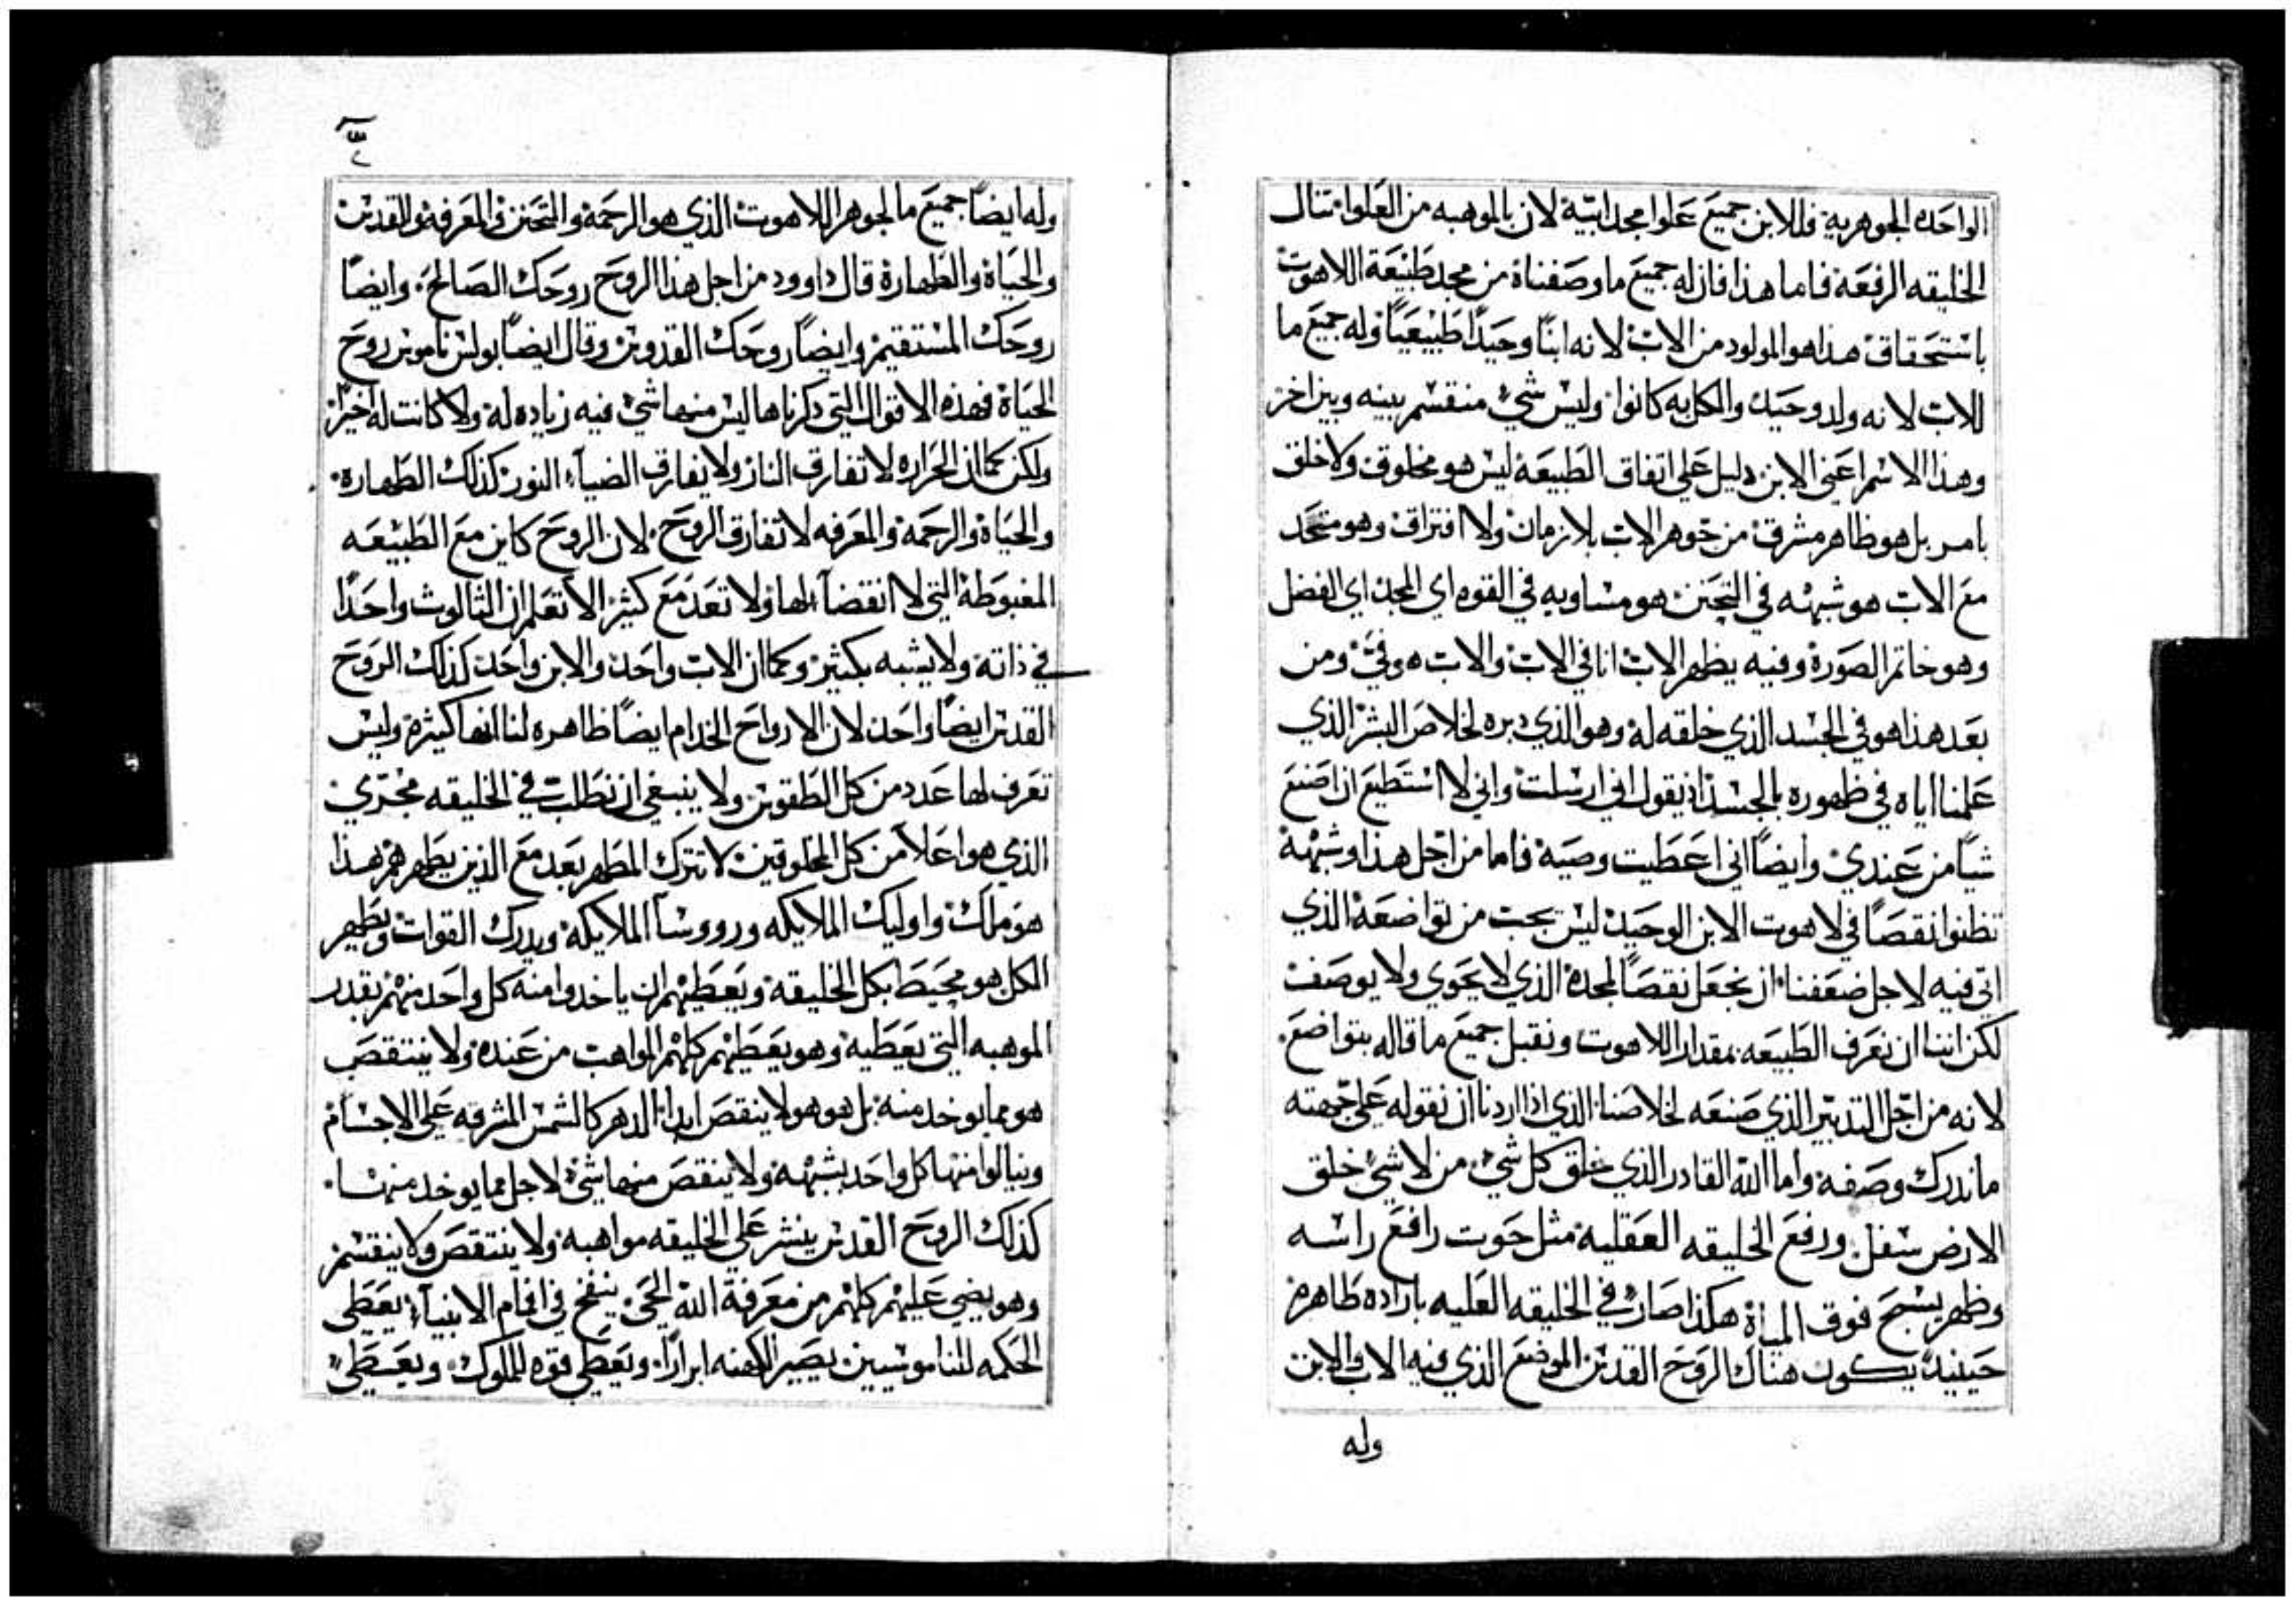 الواحده الجوهريه فللابن جميع علوا مجد ابيه لان بالموهبه من العلوا تنال
الخليقه الرفعة فاما هذا فان له جميع ما وصفناه من مجد طبيعة اللاهوت
باستحقاق هذا هو المولود من الاب لانه ابنًا وحيدًا طبيعيًا وله جميع ما
للاب لانه ولد وحيد والكل به كانوا وليس شي منقسم بينه وبين اخر
وهذا الاسم اعني الابن دليل علي اتفاق الطبيعة ليس هو مخلوق ولا خلق
بامر بل هو ظاهر مشرق من جوهر الاب بلا زمان ولا افتراق وهو متحد
مع الاب هو شبهه في التحنن هو مساويه في القوه اي المجد اي الفضل
وهو خاتم الصورة وفيه يظهر الاب انا في الاب والاب هو فيَّ ومن
بعد هذا هو في الجسد الذي خلقه له وهو الذي دبره لخلاص البشر الذي
علمنا اياه في ظهوره بالجسد اذ يقول اني ارسلت واني لا استطيع ان اصنع
شيًا من عندي وايضًا اني اعطيت وصية فاما من اجل هذا وشبهه
تظنوا نقصًا في لاهوت الابن الوحيد ليس يجب من تواضعه الذي
اتي فيه لاجل ضعفنا ان نجعل نقصًا لمجده الذي لا يحوي ولا يوصف
لكن اننا ان نعرف الطبيعه بمقدار اللاهوت ونقبل جميع ما قاله بتواضع
لانه من اجل التدبير الذي صنعه لخلاصنا الذي اذا اردنا ان نقوله علي جهته
ما ندرك وصفه واما الله القادر الذي خلق كل شي من لا شي خلق
الارض سفل ورفع الخليقه العقليه مثل حوت رافع راسه
وظهر يسبح فوق المياة هكذا صارت في الخليقه العليه باراده طاهره
حينيد يكون هناك الروح القدس الموضع الذي فيه الاب والابن
وله
وله ايضًا جميع ما لجوهر اللاهوت الذي هو الرحمة والتحنن والمعرفة والقدس
والحياة والطهارة قال داوود من اجل هذا الروح روحك الصالح وايضًا
روحك المستقيم وايضًا روحك القدوس وقال ايضًا بولس ناموس روح
الحياة فهذه الاقوال التي ذكرناها ليس منها شي فيه زياده له ولا كانت له اخيرًا
ولكن كما ان الحراره لا تفارق النار ولا يفارق الضيآ النور كذلك الطهارة
والحياة والرحمة والمعرفه لا تفارق الروح لان الروح كاين مع الطبيعه
المغبوطة التي لا انقضآ لها ولا تعد مع كثير الا تعلم ان الثالوث واحدًا
في ذاته ولا يشبه بكثير وكما ان الاب واحد والابن واحد كذلك الروح
القدس ايضًا واحد لان الارواح الخدام ايضًا ظاهره لنا انها كثيرة وليس
تعرف لها عدد من كل الطقوس ولا ينبغي ان نطلب في الخليقه مجري
الذي هو اعلا من كل المخلوقين لا تترك المطهر بعد مع الذين يطهرهم هذا
هو ملك واوليك الملايكه ورووسآ الملايكة ويدرك القوات ويطهر
الكل هو محيط بكل الخليقة ويعطيهم ان ياخدوا منه كل واحد منهم بقدر
الموهبه التي يعطيه وهو يعطيهم كلهم المواهب من عنده ولا ينتقص
هو مما يوخد منه بل هو هو لا ينقص ابدا الدهر كالشمس المشرقه علي الاجسام
وينالوا منها كل واحد بشبهه ولا ينقص منها شي لاجل مما يوخد منها
كذلك الروح القدس ينشر علي الخليقه مواهبه ولا ينتقص ولا ينقسم
وهو يضي عليهم كلهم من معرفة الله الحي ينفخ في افمام الانبيآ يعطي
الحكمه للناموسيين يصير الكهنه ابرارًا ويعطي قوه للملوك ويعطي